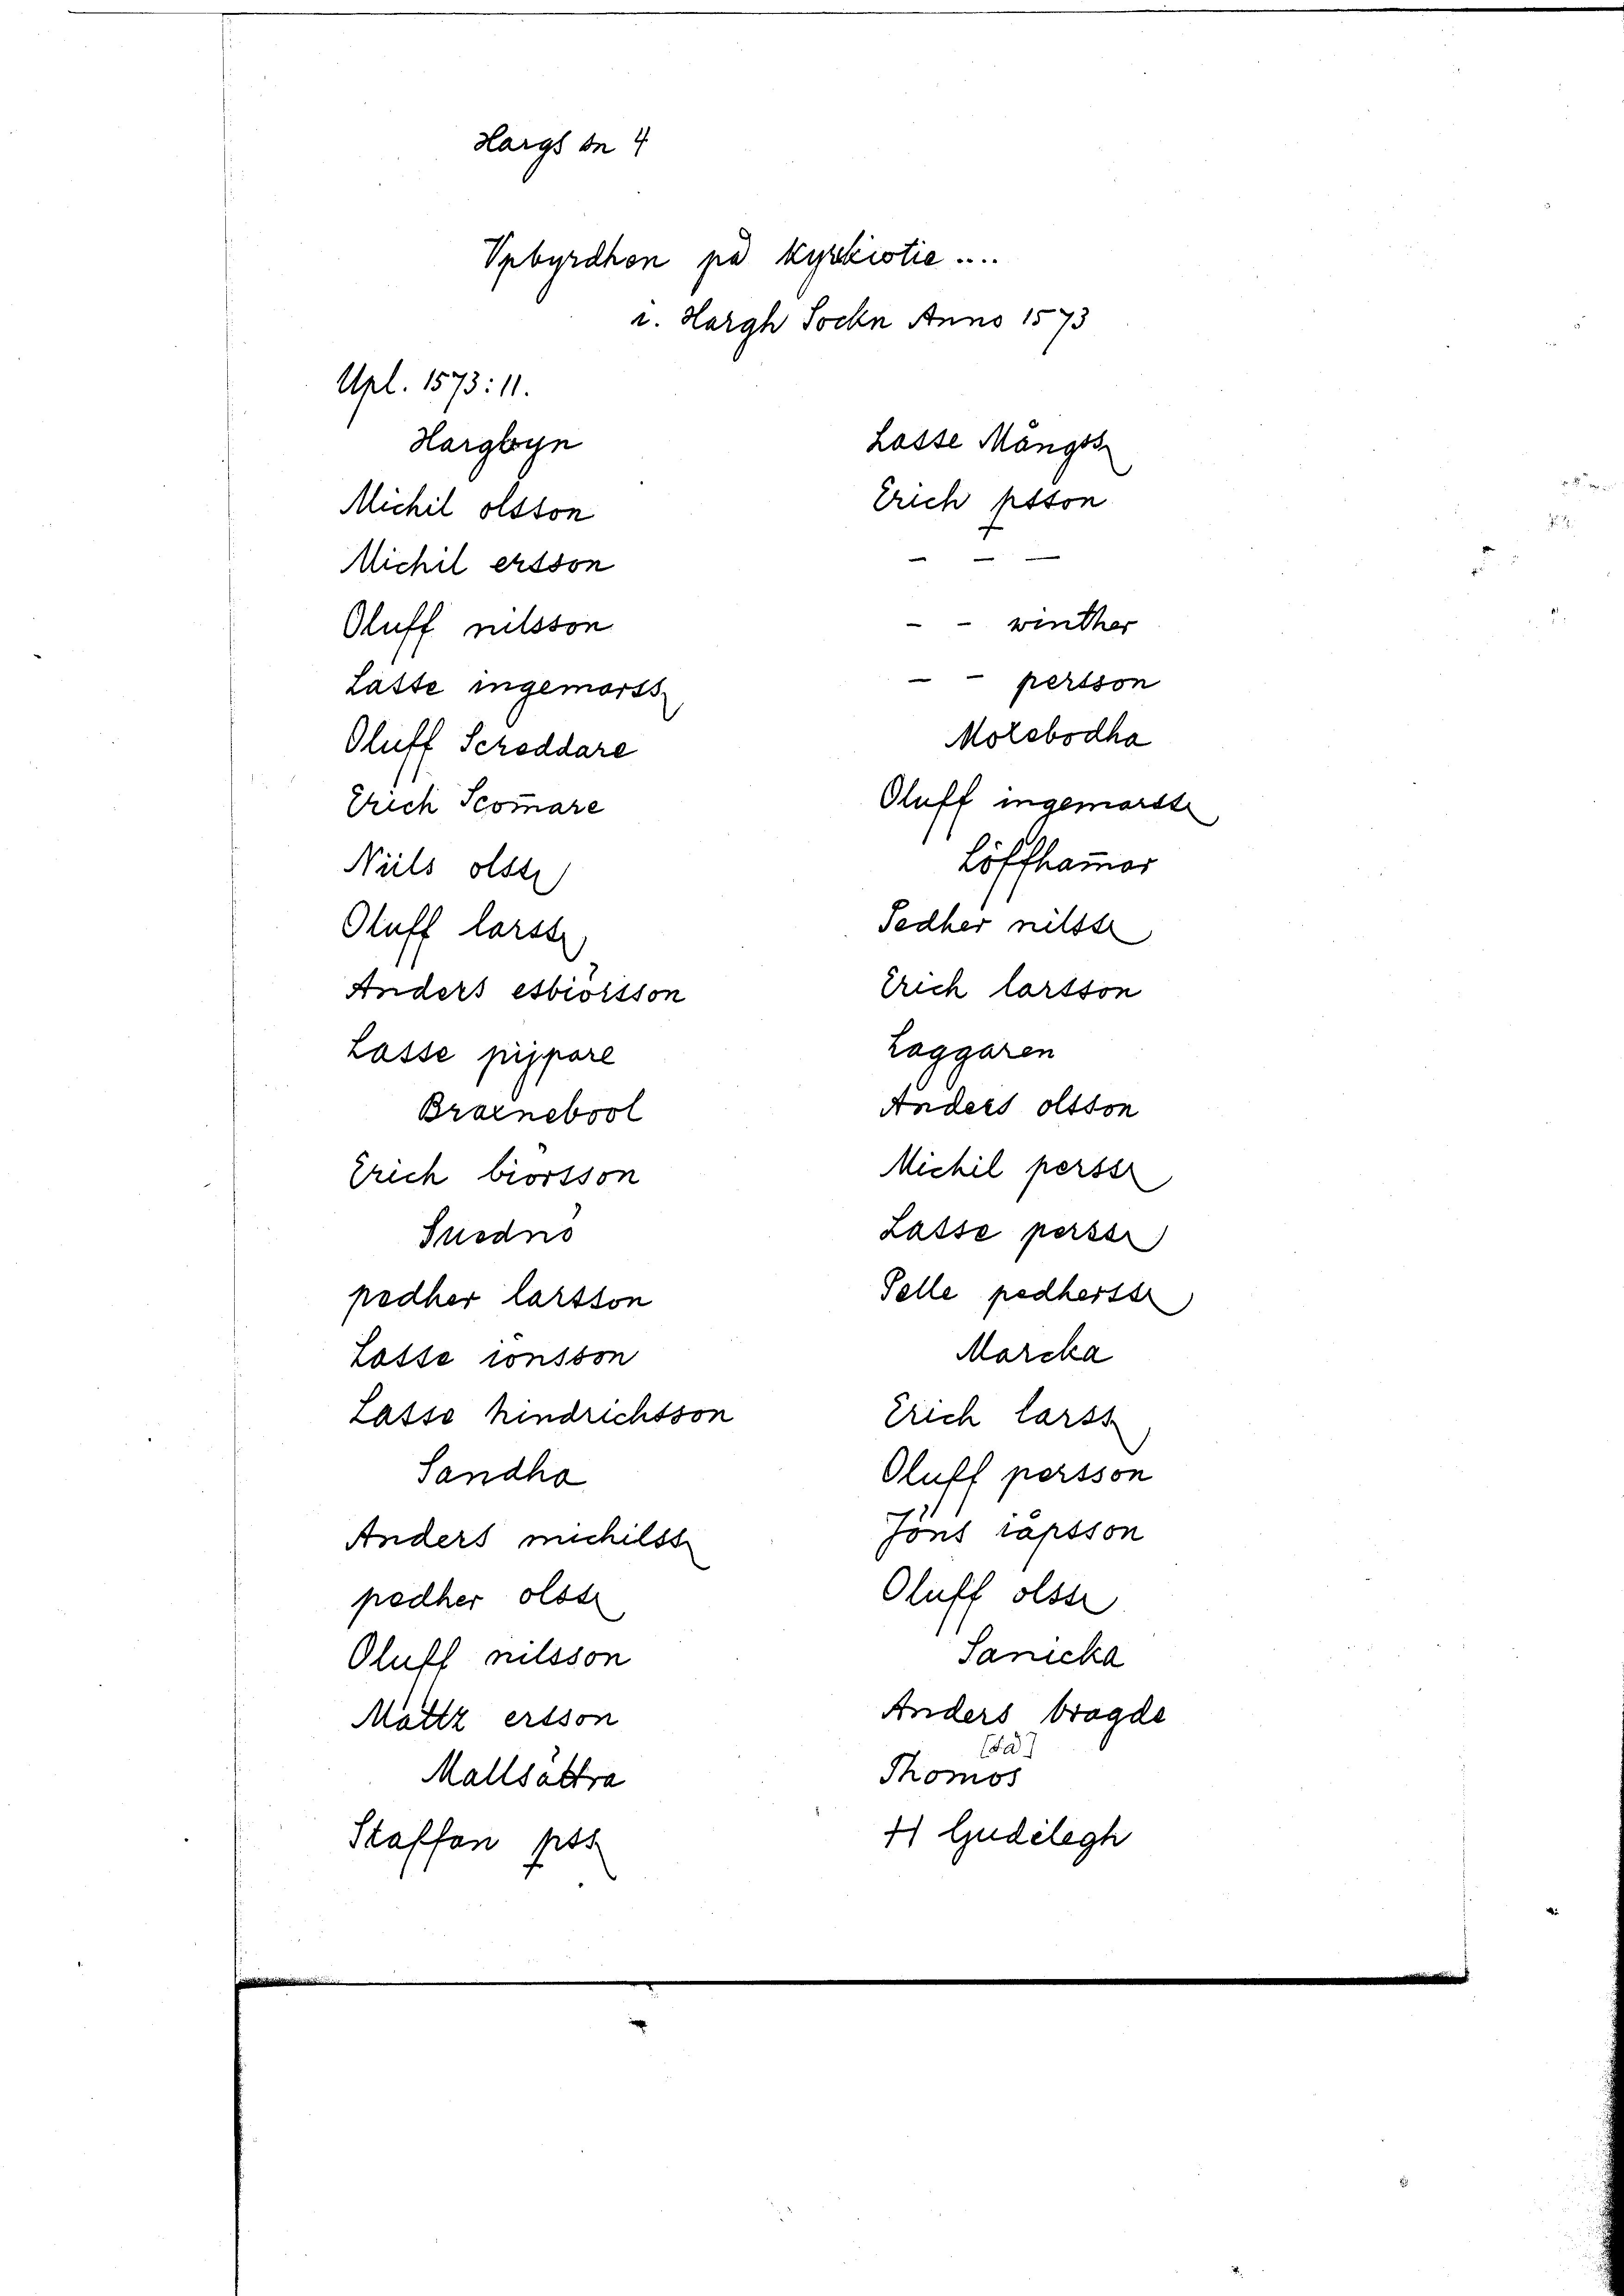 Hargs sn 4
Vpbyrdhen på kyrkiotie ....
i. Hargh Sockn Anno 1573
Upl. 1573:11.
Hargbyn
Michil olsson
Michil ersson
Oluff nilsson
Lasse ingemorss
Oluff Screddare
Erich Scom̄are
Niils olss
Oluff larss
Anders esbiörsson
Lasse pijpare
Bragnebool
Erich biörsson
Suednö
pedher larsson
Lasse iönsson
Lasse hindrichsson
Sandha
Anders michilss
pedher olss
Oluff nilsson
Mattz ersson
Mallsättra
Staffan pss
Lasse Mångss
Erich psson
- - -
- - winther
- - persson
Molebodha
Oluff ingemarss
Löffham̄ar
Pedher nilss
Erich larsson
Laggaren
Anders olsson
Michil perss
Lasse perss
Pelle pedherss
Marcka
Erich larss
Oluff persson
Jöns iäpsson
Oluff olss
Sanicka
Anders bragde
[så]
Thomos
H Gudelegh